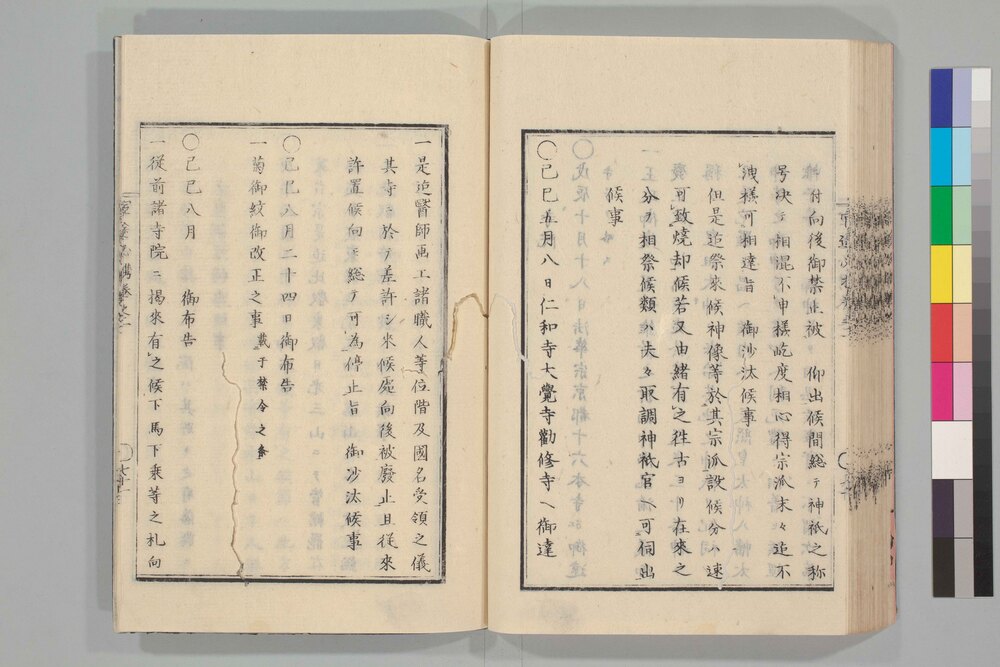 付向後御禁止被㆑ 仰出候間総テ神祇之称
号决テ相混不申様屹度相心得宗派末々迄不
洩様可相達旨 御沙汰候事
但是迄祭来候神像等於其宗派設候分ハ速
可致焼却候若又由緒有之往古ヨリ在来之
分ヲ相祭候類ハ夫々取調神祇官ヘ可伺出
候事
〇己巳五月八日仁和寺大覺寺勸修寺ヘ御達
一是迄醫師画工諸職人等位階及國名受領之儀
其寺於テ差許シ来候處向後被廢止且従来
許置候向モ総テ可為停止旨御沙汰候事
〇己巳八月二十四日御布告
一菊御紋御改正之事 載于禁令之巻
〇己巳八月 御布告
一従前諸寺院ニ揭来有之候下馬下乗等之札向